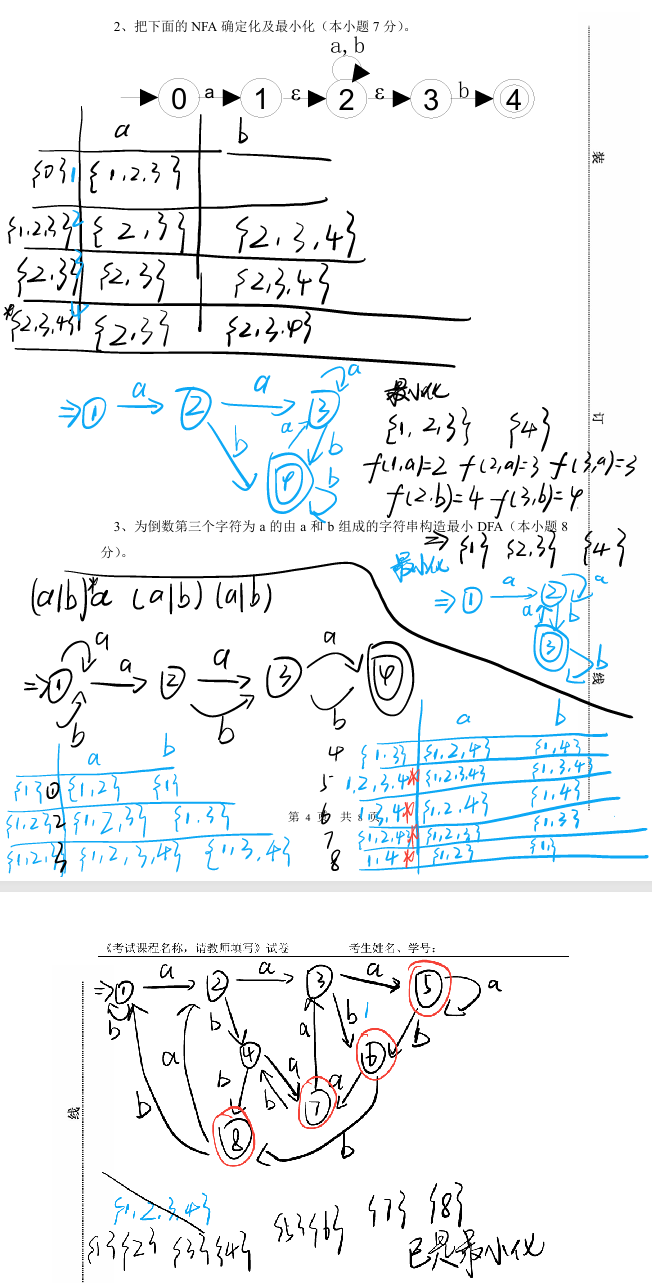 2、把下面的 NFA 确定化及最小化（本小题 7 分）。
a,b
0 a 1 ε 2 ε 3 b 4
a b
{0} 1 {1,2,3}
{1,2,3} 2 {2,3} {2,3,4}
{2,3} 3 {2,3} {2,3,4}
*{2,3,4} 4 {2,3} {2,3,4}
装
订
线
⇒ 1 a 2 a 3 a
b a b
4 b
最小化
{1,2,3} {4}
f(1,a)=2 f(2,a)=3 f(3,a)=3
f(2,b)=4 f(3,b)=4
⇒ {1} {2,3} {4}
3、为倒数第三个字符为 a 的由 a 和 b 组成的字符串构造最小 DFA（本小题 8
分）。
最小化
⇒ 1 a 2 a
a b
3 b
(a|b)*a (a|b) (a|b)
a a a a
⇒ 1 2 3 4
b b b
a b
{1} 1 {1,2} {1}
{1,2} 2 {1,2,3} {1,3}
{1,2,3} 3 {1,2,3,4} {1,3,4}
a b
4 {1,3} {1,2,4} {1,4}
5 1,2,3,4* {1,2,3,4} {1,3,4}
6 1,3,4* {1,2,4} {1,4}
7 {1,2,4}* {1,2,3} {1,3}
8 1,4* {1,2} {1}
第 4 页 共 8 页
《考试课程名称，请教师填写》试卷 考生姓名、学号：
⇒ 1 a 2 a 3 a 5 a
b b b 1 b
a 4 a a 6
b b b a
8 7 b
线
{1,2,3,4}
{1} {2} {3} {4} {5} {6} {7} {8}
已是最小化